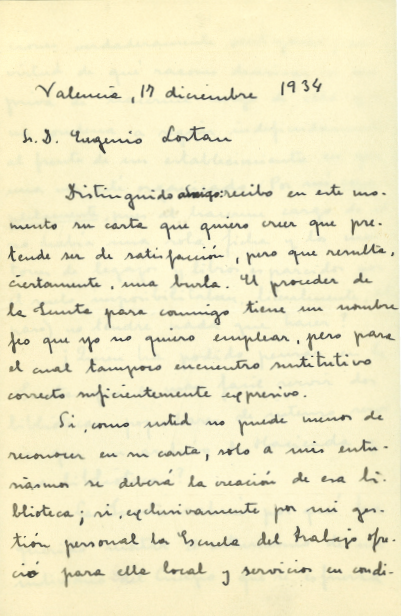 Valencia, 17 diciembre 1934
Sr. D. Eugenio Lostau
Distinguido amigo: recibo en este mo-
mento su carta que quiero creer que pre-
tende ser de satisfacción, pero que resulta,
ciertamente, una burla. El proceder de
la Junta para conmigo tiene un nombre
feo que yo no quiero emplear, pero para
el cual tampoco encuentro sustitutivo
correcto suficientemente expresivo.
Si, como usted no puede menos de
reconocer en su carta, solo a mis entu-
siasmos se deberá la creación de esa bi-
blioteca; si, exclusivamente por mi ges-
tión personal la Escuela del Trabajo ofre-
ció para ella local y servicios en condi-